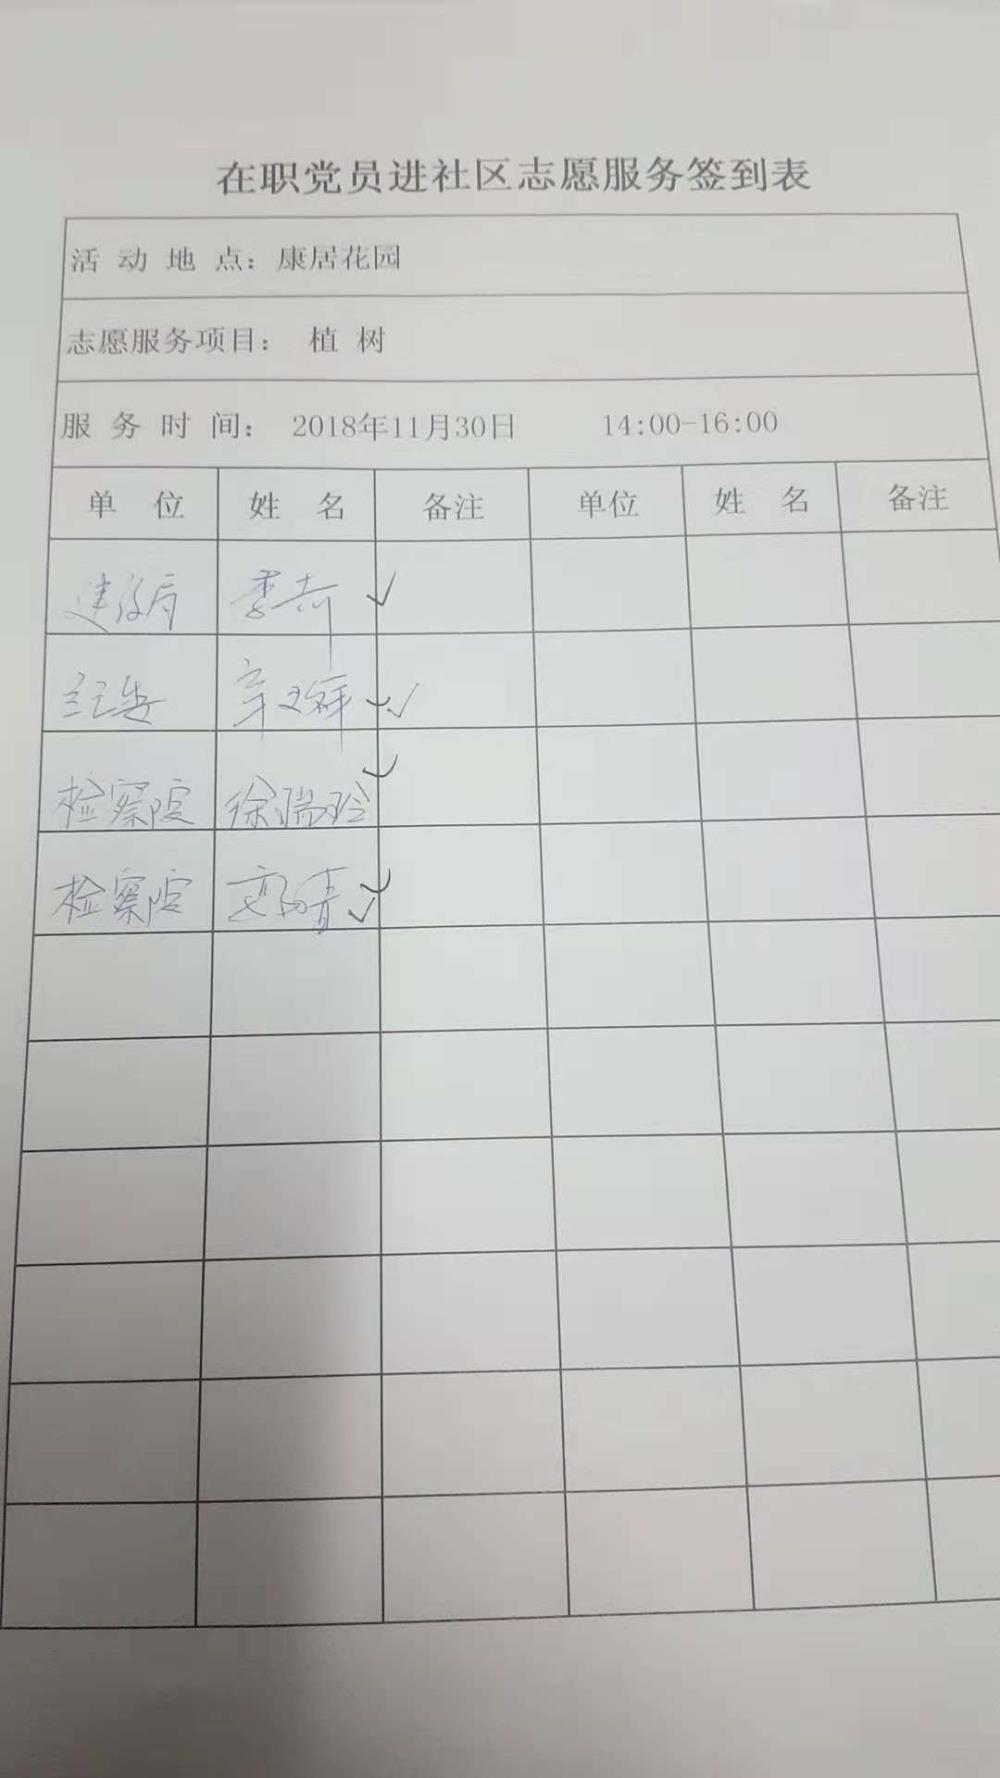 在职党员进社区志愿服务签到表
活 动 地 点：康居花园
志愿服务项目： 植 树
服 务 时 间： 2018年11月30日 14:00-16:00
单 位 姓 名 备注 单位 姓 名 备注
建设局 ✓
纪委 ✓
检察院 徐瑞玲 ✓
检察院 ✓